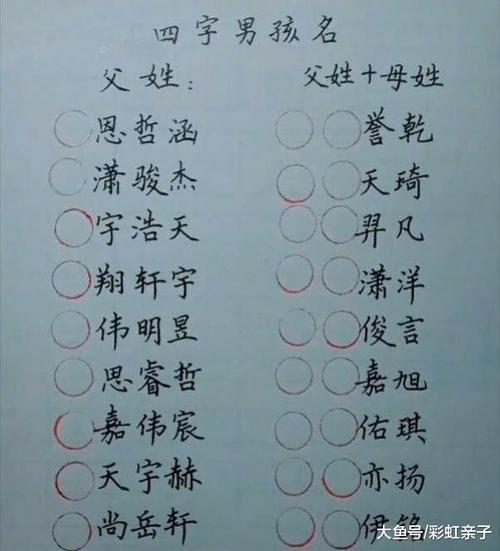 四字男孩名
父姓：
恩哲涵
潇骏杰
宇浩天
翔轩宇
伟明昱
思睿哲
嘉伟宸
天宇赫
尚岳轩
父姓+母姓
誉乾
天琦
羿凡
潇洋
俊言
嘉旭
佑琪
亦扬
伊铭
大鱼号/彩虹亲子